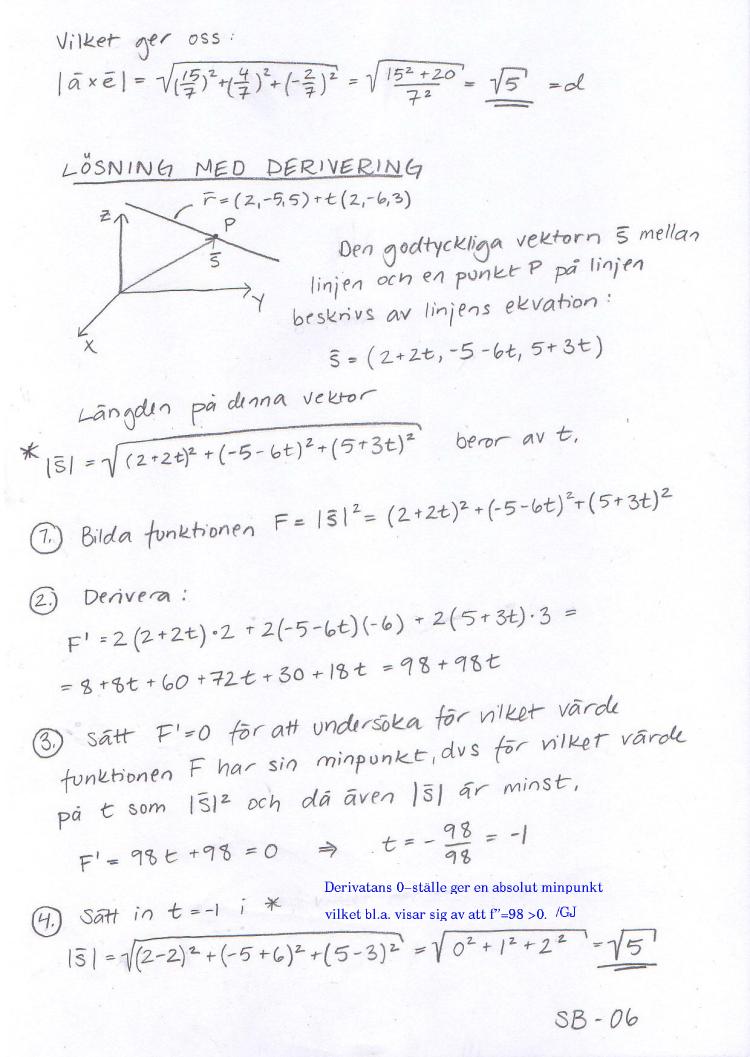 Vilket ger oss:
|ā × ē| = √((15/7)² + (4/7)² + (-2/7)²) = √((15² + 20)/7²) = √5 = d
LÖSNING MED DERIVERING
r̄ = (2,-5,5) + t(2,-6,3)
Z
P
s̄
Y
X
Den godtyckliga vektorn s̄ mellan
linjen och en punkt P på linjen
beskrivs av linjens ekvation:
s̄ = (2+2t, -5-6t, 5+3t)
Längden på denna vektor
* |s̄| = √((2+2t)² + (-5-6t)² + (5+3t)²) beror av t.
1. Bilda funktionen F = |s̄|² = (2+2t)² + (-5-6t)² + (5+3t)²
2. Derivera:
F' = 2(2+2t)·2 + 2(-5-6t)(-6) + 2(5+3t)·3 =
= 8+8t+60+72t+30+18t = 98+98t
3. Sätt F'=0 för att undersöka för vilket värde
funktionen F har sin minpunkt, dvs för vilket värde
på t som |s̄|² och då även |s̄| är minst.
F' = 98t + 98 = 0 ⇒ t = -98/98 = -1
Derivatans 0-ställe ger en absolut minpunkt
vilket bl.a. visar sig av att f''=98 >0. /GJ
4. Sätt in t=-1 i *
|s̄| = √((2-2)² + (-5+6)² + (5-3)²) = √(0² + 1² + 2²) = √5
SB - 06